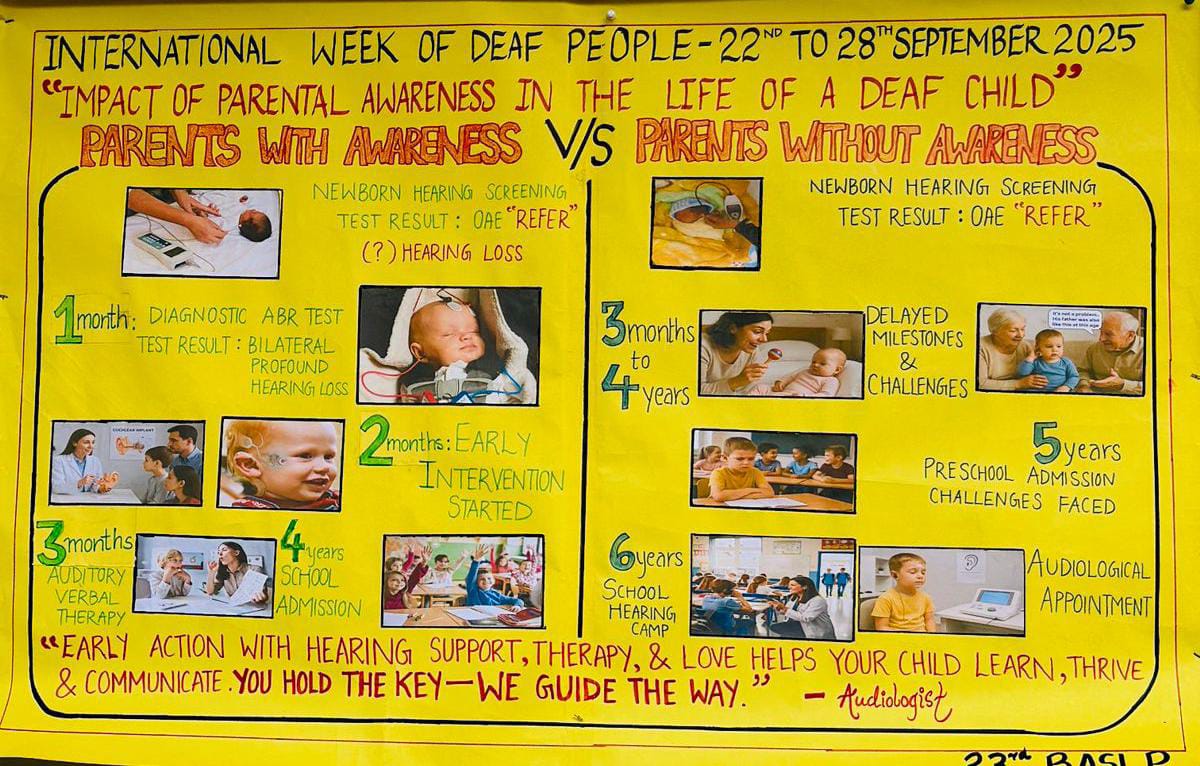 INTERNATIONAL WEEK OF DEAF PEOPLE - 22ND TO 28TH SEPTEMBER 2025
"IMPACT OF PARENTAL AWARENESS IN THE LIFE OF A DEAF CHILD"
PARENTS WITH AWARENESS V/S PARENTS WITHOUT AWARENESS
NEWBORN HEARING SCREENING
TEST RESULT : OAE "REFER"
(?) HEARING LOSS
1month: DIAGNOSTIC ABR TEST
TEST RESULT : BILATERAL
PROFOUND
HEARING LOSS
COCHLEAR IMPLANT
2months: EARLY
INTERVENTION
STARTED
3months
AUDITORY
VERBAL
THERAPY
4years
SCHOOL
ADMISSION
NEWBORN HEARING SCREENING
TEST RESULT : OAE "REFER"
3months
to
4years
DELAYED
MILESTONES
&
CHALLENGES
It's not a problem..
His father was also
like this at this age
5years
PRESCHOOL ADMISSION
CHALLENGES FACED
6years
SCHOOL
HEARING
CAMP
AUDIOLOGICAL
APPOINTMENT
"EARLY ACTION WITH HEARING SUPPORT, THERAPY, & LOVE HELPS YOUR CHILD LEARN, THRIVE
& COMMUNICATE. YOU HOLD THE KEY—WE GUIDE THE WAY." - Audiologist
23rd BASLP